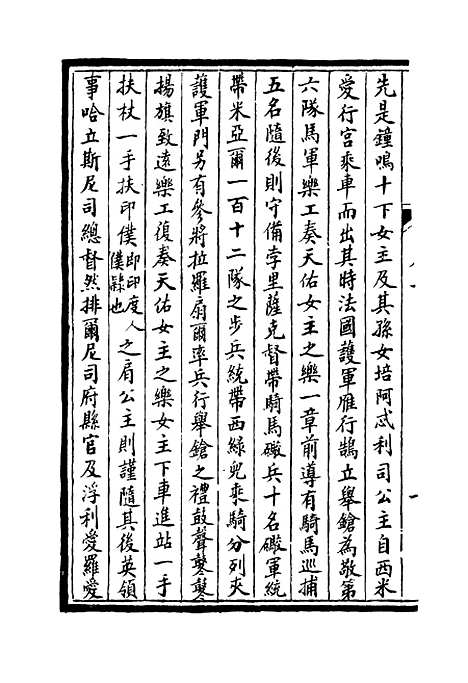 先是鐘鳴十下女主及其孫女培阿忒利司公主自西米
愛行宮乘車而出其時法國護軍雁行鵠立舉鎗為敬第
六隊馬軍樂工奏天佑女主之樂一章前導有騎馬巡捕
五名隨後則守備李里薩克督帶騎馬礮兵十名礮軍統
帶米亞爾一百十二隊之步兵統帶西綠兜乘騎分列夾
護軍門另有參將拉羅扇爾率兵行舉鎗之禮鼓聲鼕鼕
揚旗致遠樂工復奏天佑女主之樂女主下車進站一手
扶杖一手扶印僕即印度人僕隸也之肩公主則謹隨其後英領
事哈立斯尼司總督然排爾尼司府縣官及浮利愛羅愛